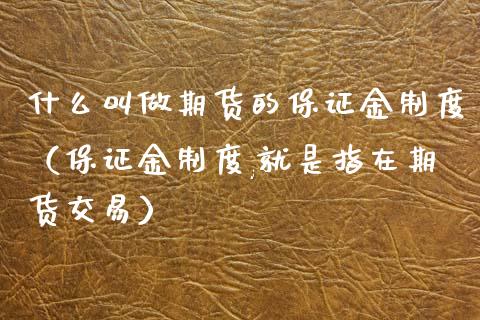 什么叫做期货的保证金制度
（保证金制度,就是指在期
货交易）